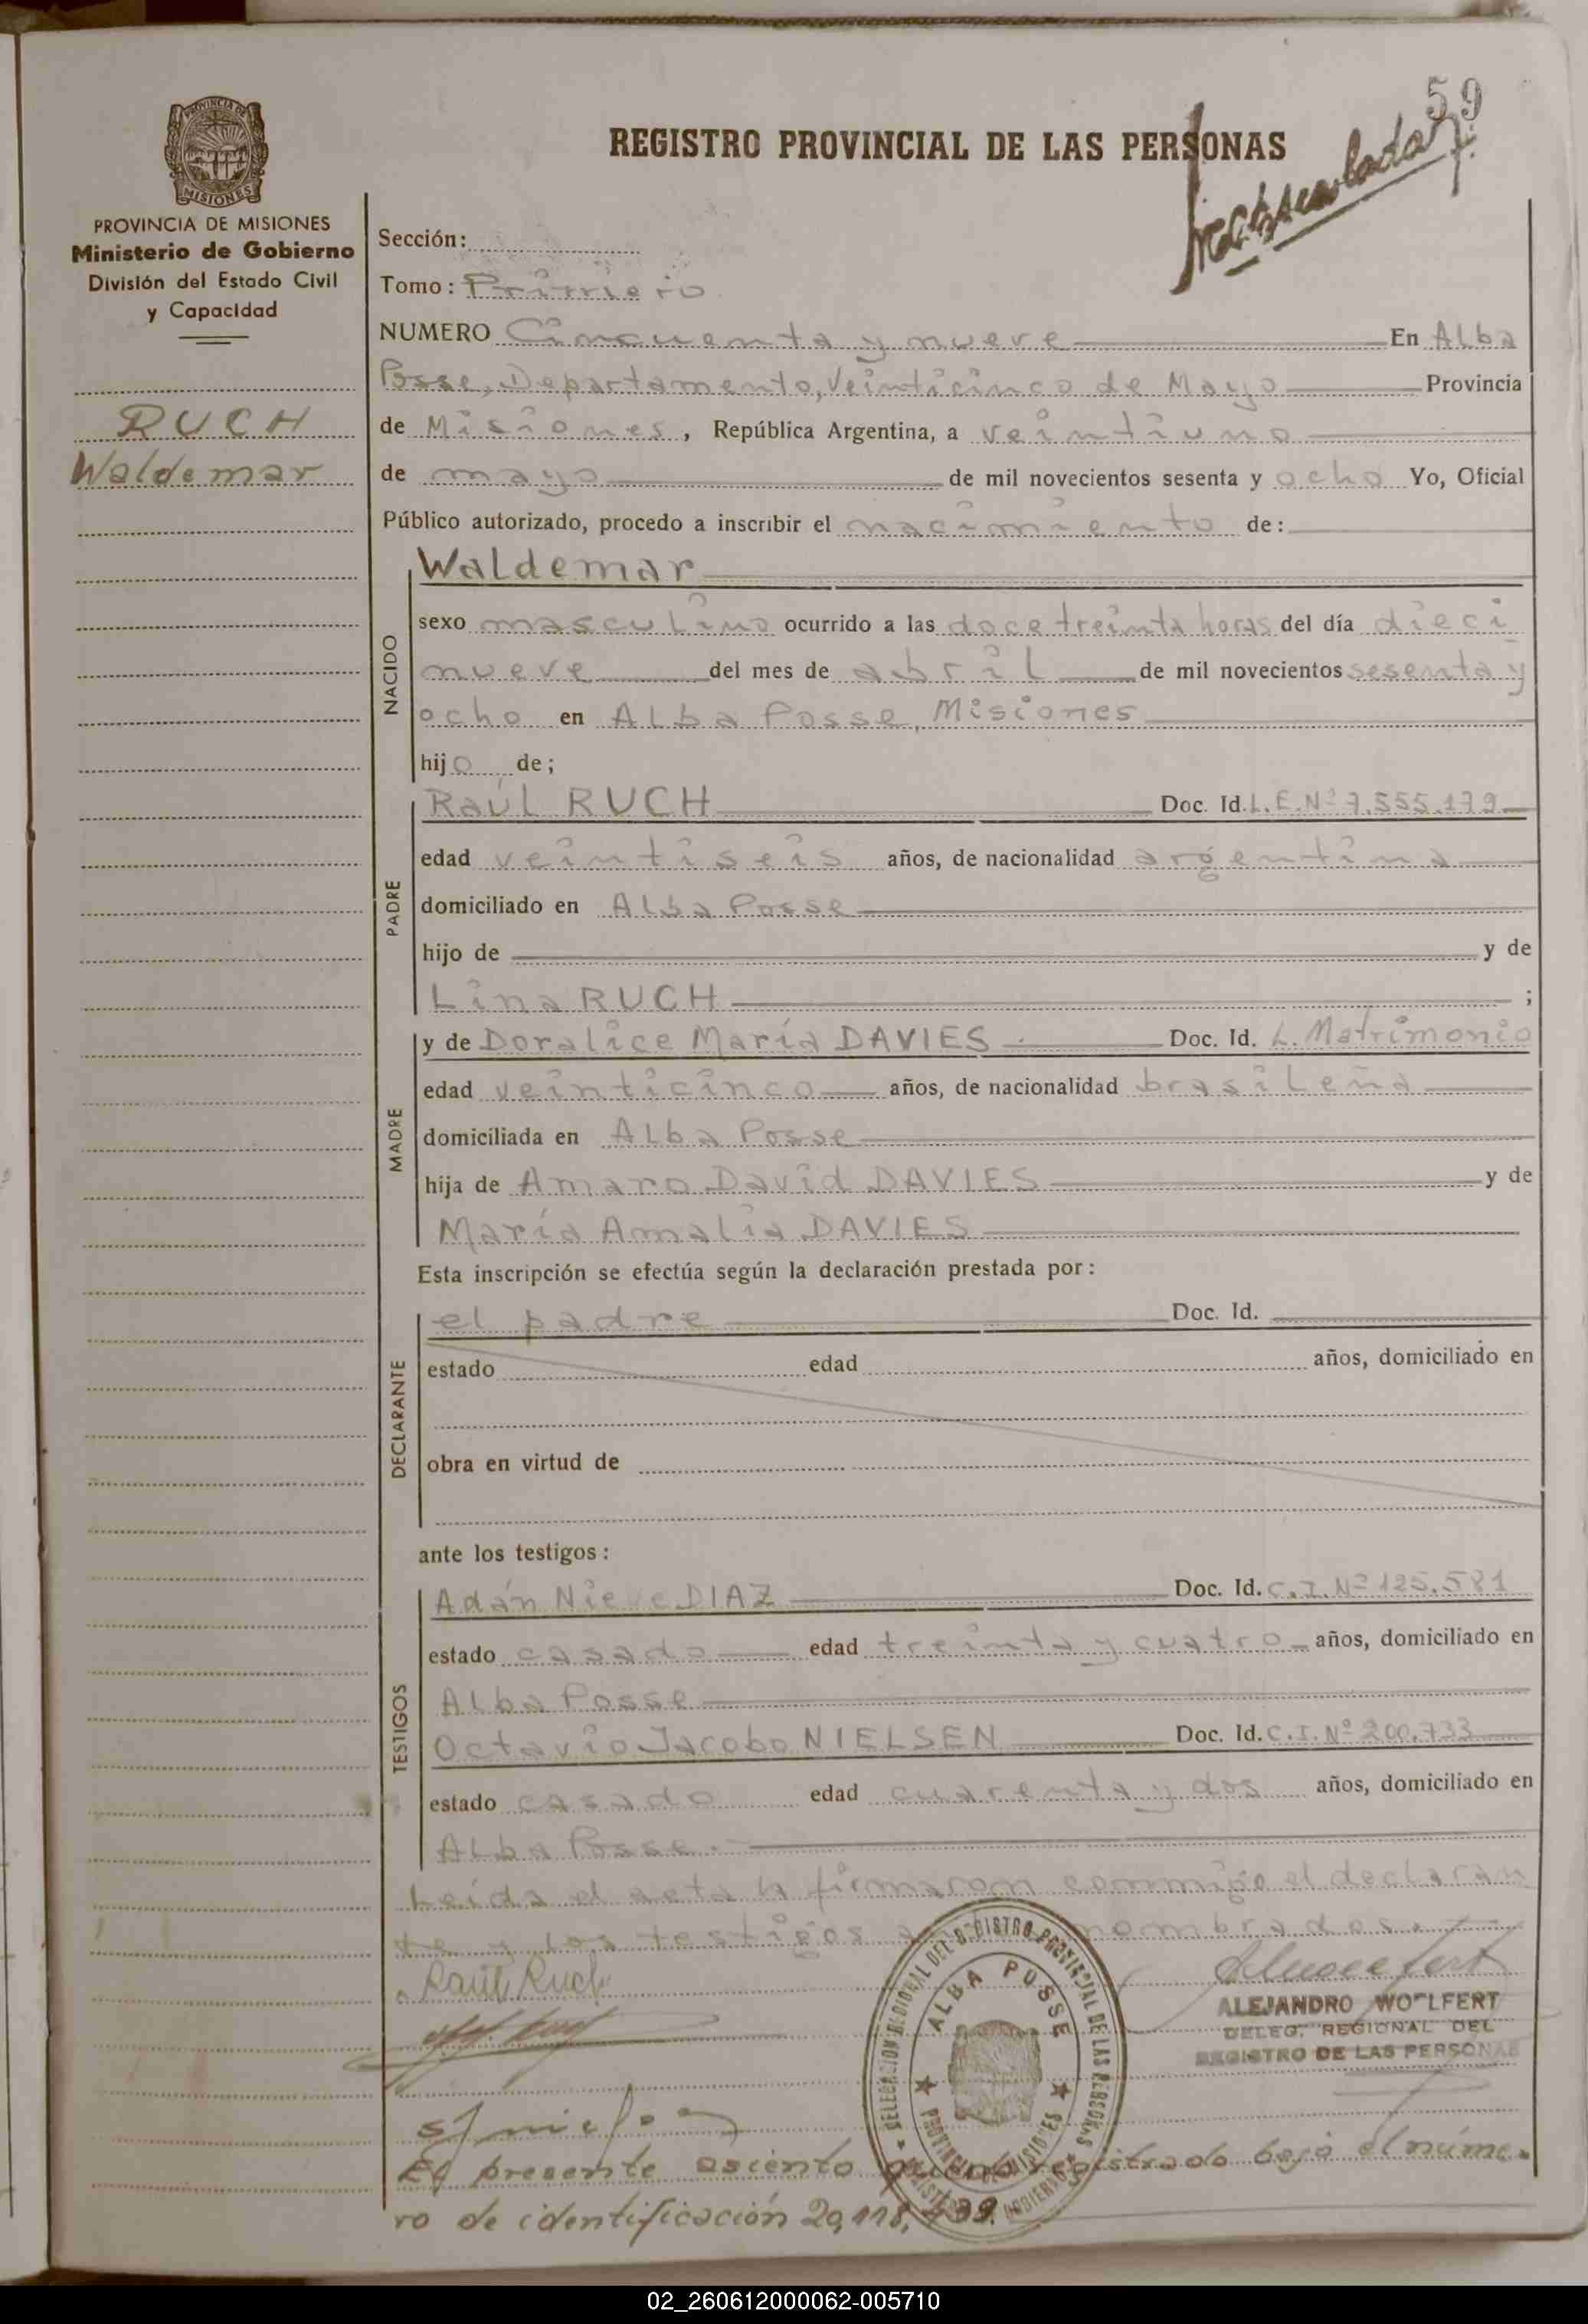 59
REGISTRO PROVINCIAL DE LAS PERSONAS
PROVINCIA DE
MISIONES
PROVINCIA DE MISIONES
Ministerio de Gobierno
División del Estado Civil
y Capacidad
RUCH
Waldemar
Sección:
Tomo: Primero
NUMERO Cincuenta y nueve En Alba
Posse, Departamento, Veinticinco de Mayo Provincia
de Misiones, República Argentina, a veintiuno
de mayo de mil novecientos sesenta y ocho Yo, Oficial
Público autorizado, procedo a inscribir el nacimiento de:
NACIDO
Waldemar
sexo masculino ocurrido a las doce treinta horas del día dieci
nueve del mes de abril de mil novecientos sesenta y
ocho en Alba Posse, Misiones
hijo de;
PADRE
Raúl RUCH Doc. Id. L.E. Nº 7.555.179
edad veintiseis años, de nacionalidad argentina
domiciliado en Alba Posse
hijo de y de
Lina RUCH ;
MADRE
y de Doralice María DAVIES Doc. Id. L. Matrimonio
edad veinticinco años, de nacionalidad brasileña
domiciliada en Alba Posse
hija de Amaro David DAVIES y de
María Amalia DAVIES
Esta inscripción se efectúa según la declaración prestada por:
DECLARANTE
el padre Doc. Id.
estado edad años, domiciliado en
obra en virtud de
ante los testigos:
TESTIGOS
Adán Nieve DIAZ Doc. Id. C.I. Nº 125.581
estado casado edad treinta y cuatro años, domiciliado en
Alba Posse
Octavio Jacobo NIELSEN Doc. Id. C.I. Nº 200.733
estado casado edad cuarenta y dos años, domiciliado en
Alba Posse.
Leída el acta la firmaron conmigo el declaran
te y los testigos nombrados.
Raúl Ruch
ALEJANDRO WOLFERT
DELEG. REGIONAL DEL
REGISTRO DE LAS PERSONAS
DELEGACION REGIONAL DEL REGISTRO PROVINCIAL DE LAS PERSONAS
ALBA POSSE
PROVINCIA DE MISIONES
El presente asiento queda registrado bajo el núme-
ro de identificación 20,118,
02_260612000062-005710